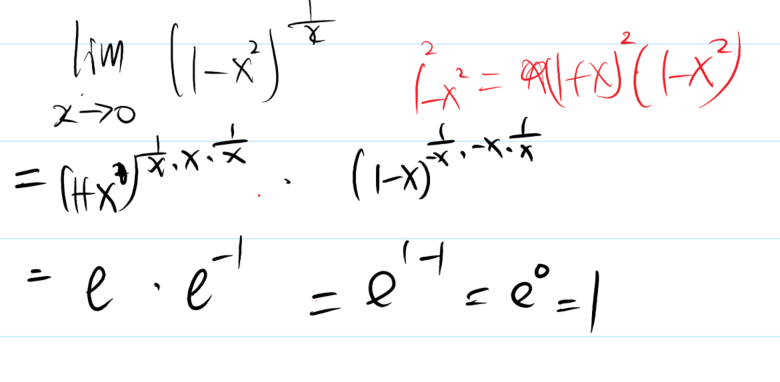 lim x→0 (1-x²)^(1/x) 1²-x² = (1+x)²(1-x²)
= (1+x)^(1/x · x · 1/x) · (1-x)^(1/-x · -x · 1/x)
= e · e^-1 = e^(1-1) = e^0 = 1